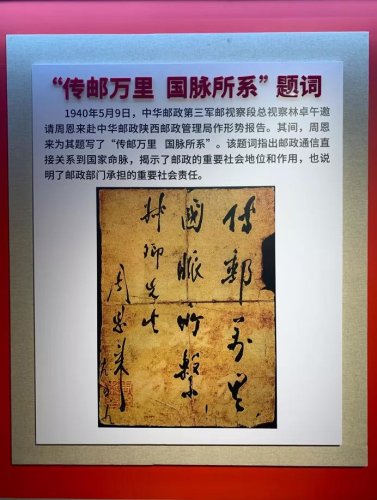 “传邮万里 国脉所系”题词
1940年5月9日，中华邮政第三军邮视察段总视察林卓午邀
请周恩来赴中华邮政陕西邮政管理局作形势报告。其间，周恩
来为其题写了“传邮万里 国脉所系”。该题词指出邮政通信直
接关系到国家命脉，揭示了邮政的重要社会地位和作用，也说
明了邮政部门承担的重要社会责任。
传邮万里
國脈所繫
林卿先生
周恩来